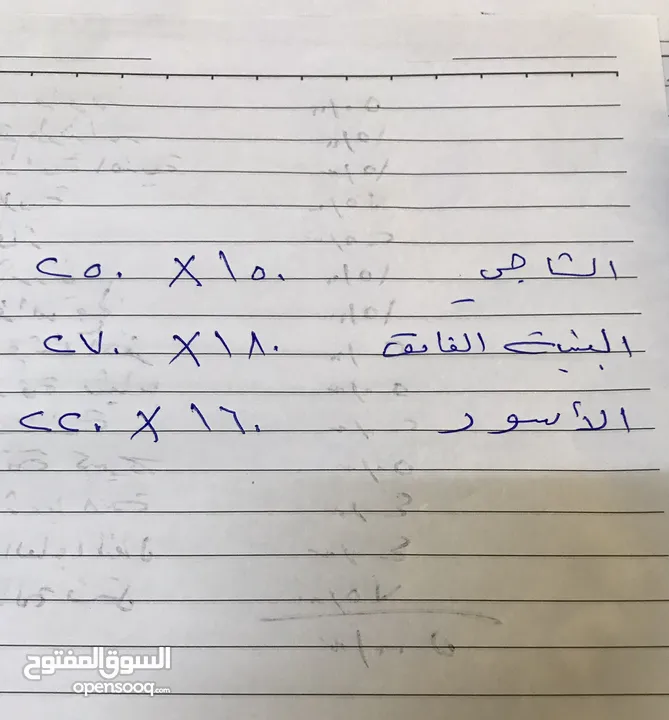 العاجي ١٥٠ X ٢٥٠
البنية الغامقة ١٨٠ X ٢٧٠
الأسود ١٦٠ X ٢٢٠
السوق المفتوح
opensooq.com